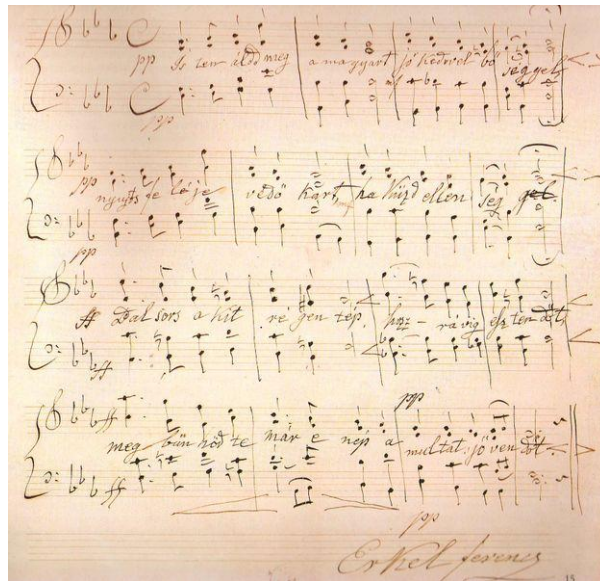 pp Is ten áldd meg a magyart jó kedvvel bő séggel
mf
pp
pp nyujts fe léje védő kart, ha küzd ellen ség gel
pp
ff Bal sors a kit re gen tép, hoz – rá víg esz ten dőt,
ff
ff pp
meg bün höd te már e nép a multat jö ven dőt
ff
pp
Erkel ferencz
15